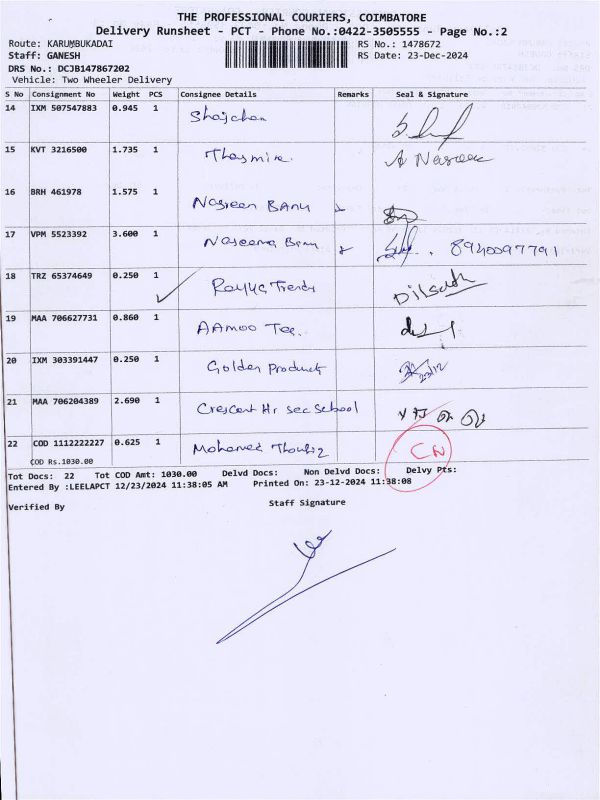 THE PROFESSIONAL COURIERS, COIMBATORE
Delivery Runsheet - PCT - Phone No.:0422-3505555 - Page No.:2
Route: KARUMBUKADAI RS No.: 1478672
Staff: GANESH RS Date: 23-Dec-2024
DRS No.: DCJB147867202
Vehicle: Two Wheeler Delivery
S No Consignment No Weight PCS Consignee Details Remarks Seal & Signature
14 IXM 507547883 0.945 1 Shajchan
15 KVT 3216500 1.735 1 Thasmira. A Nasreen
16 BRH 461978 1.575 1 Nasreen BANU
17 VPM 5523392 3.600 1 Naseema Banu 8940097791
18 TRZ 65374649 0.250 1 Rayya Trends Dilsath
19 MAA 706627731 0.860 1 AAMOO Tex.
20 IXM 303391447 0.250 1 Golden Product 23/12
21 MAA 706204389 2.690 1 Crescent Hr sec School
22 COD 1112222227 0.625 1 Mohamed Thoufiz CN
COD Rs.1030.00
Tot Docs: 22 Tot COD Amt: 1030.00 Delvd Docs: Non Delvd Docs: Delvy Pts:
Entered By :LEELAPCT 12/23/2024 11:38:05 AM Printed On: 23-12-2024 11:38:08
Verified By Staff Signature